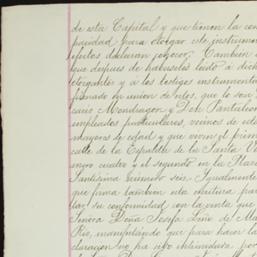 de esta Capital y que tienen la ca
pacidad para otorgar este instrumen
efectos dahman conocer. Tambien
que despues de haberseles leido á dich
otorgantes y á los testigos instrumenta
firmado en union de estos, que lo son
cario Mondragon y Don Pantaleon
empleados particulares, vecinos de es
mayores de edad y que viven el prime
calle de la Espaldilla de la Santa Ve
mero cuatro y el segundo en la Plaza
Santisima número seis. Igualmente
que firma tambien esta escritura para
tar su conformidad con la venta que
Señora Doña Josefa Leño de Ma
Rio, manifestando que para hacer la
claracion no ha sido intimidada por